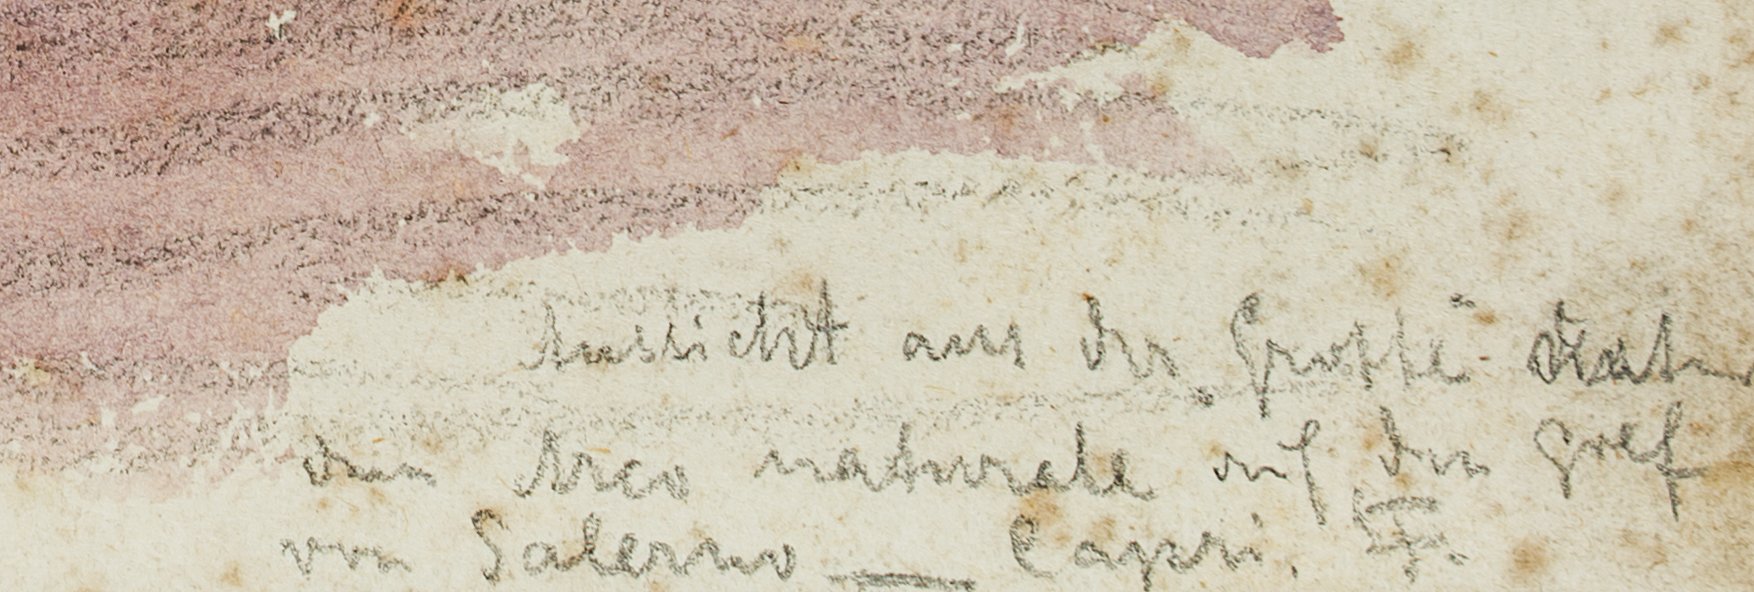 Aussicht aus der Grotte
dem Arco naturale auf den Golf
von Salerno — Capri.